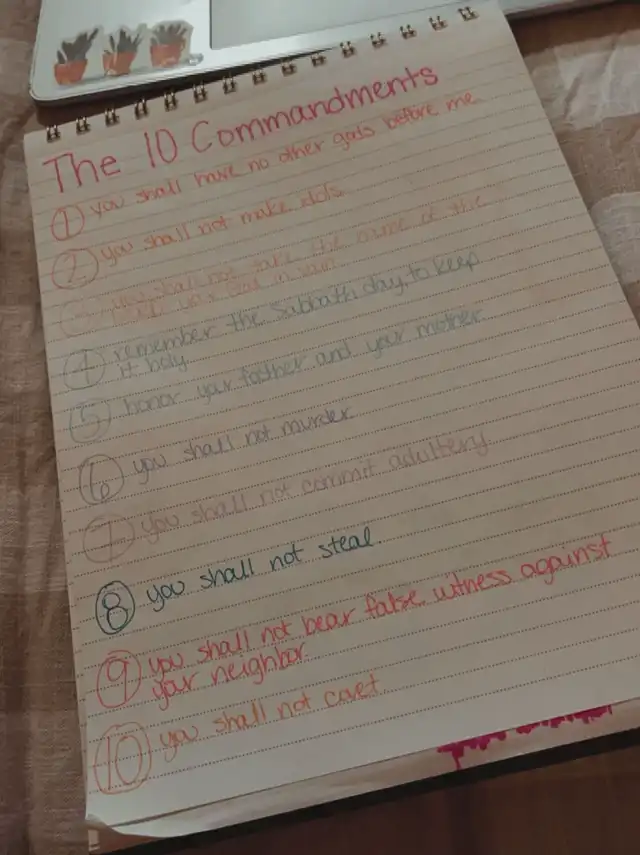 The 10 Commandments
1 you shall have no other gods before me
2 you shall not make idols
3 you shall not take the name of the
your God in vain
4 remember the Sabbath day, to keep
it holy
5 honor your father and your mother
6 you shall not murder.
7 you shall not commit adultery
8 you shall not steal.
9 you shall not bear false witness against
your neighbor.
10 you shall not covet.